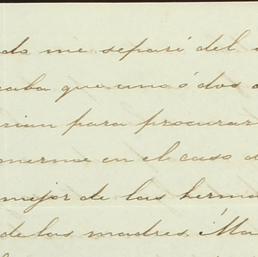 do me separé del
caba que uno ó dos
rian para procurar
onerme en el caso
mejor de las herma
de las madres. Ma